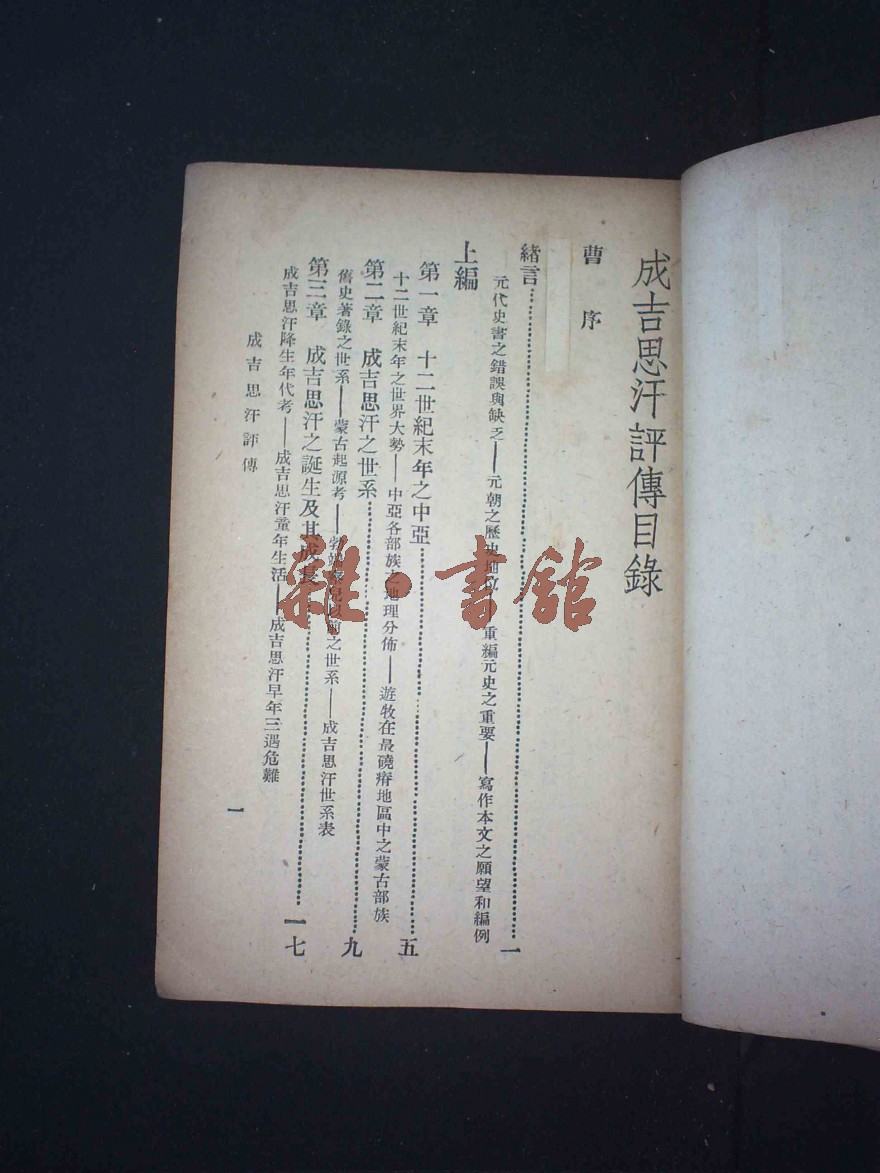 成吉思汗評傳目錄
曹 序
緒言 一
元代史書之錯誤與缺乏——元朝之歷史地位——重編元史之重要——寫作本文之願望和編例
上編
第一章 十二世紀末年之中亞 五
十二世紀末年之世界大勢——中亞各部族之地理分佈——遊牧在最磽瘠地區中之蒙古部族
第二章 成吉思汗之世系 九
舊史著錄之世系——蒙古起源考——以前之世系——成吉思汗世系表
第三章 成吉思汗之誕生及其成長 一七
成吉思汗降生年代考——成吉思汗童年生活——成吉思汗早年三遇危難
成吉思汗評傳
一
雜·書館